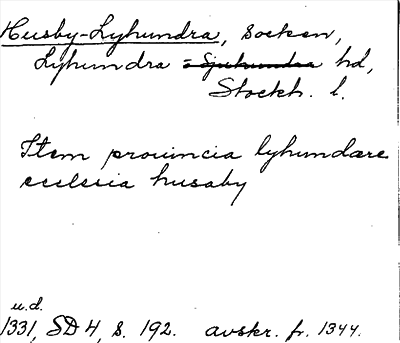 Husby-Lyhundra, socken,
Lyhundra = Sjuhundra hd,
Stockh. l.
Item prouincia lyhundare
ecclesia husaby
u.d.
1331, SD 4, s. 192. avskr. fr. 1344.